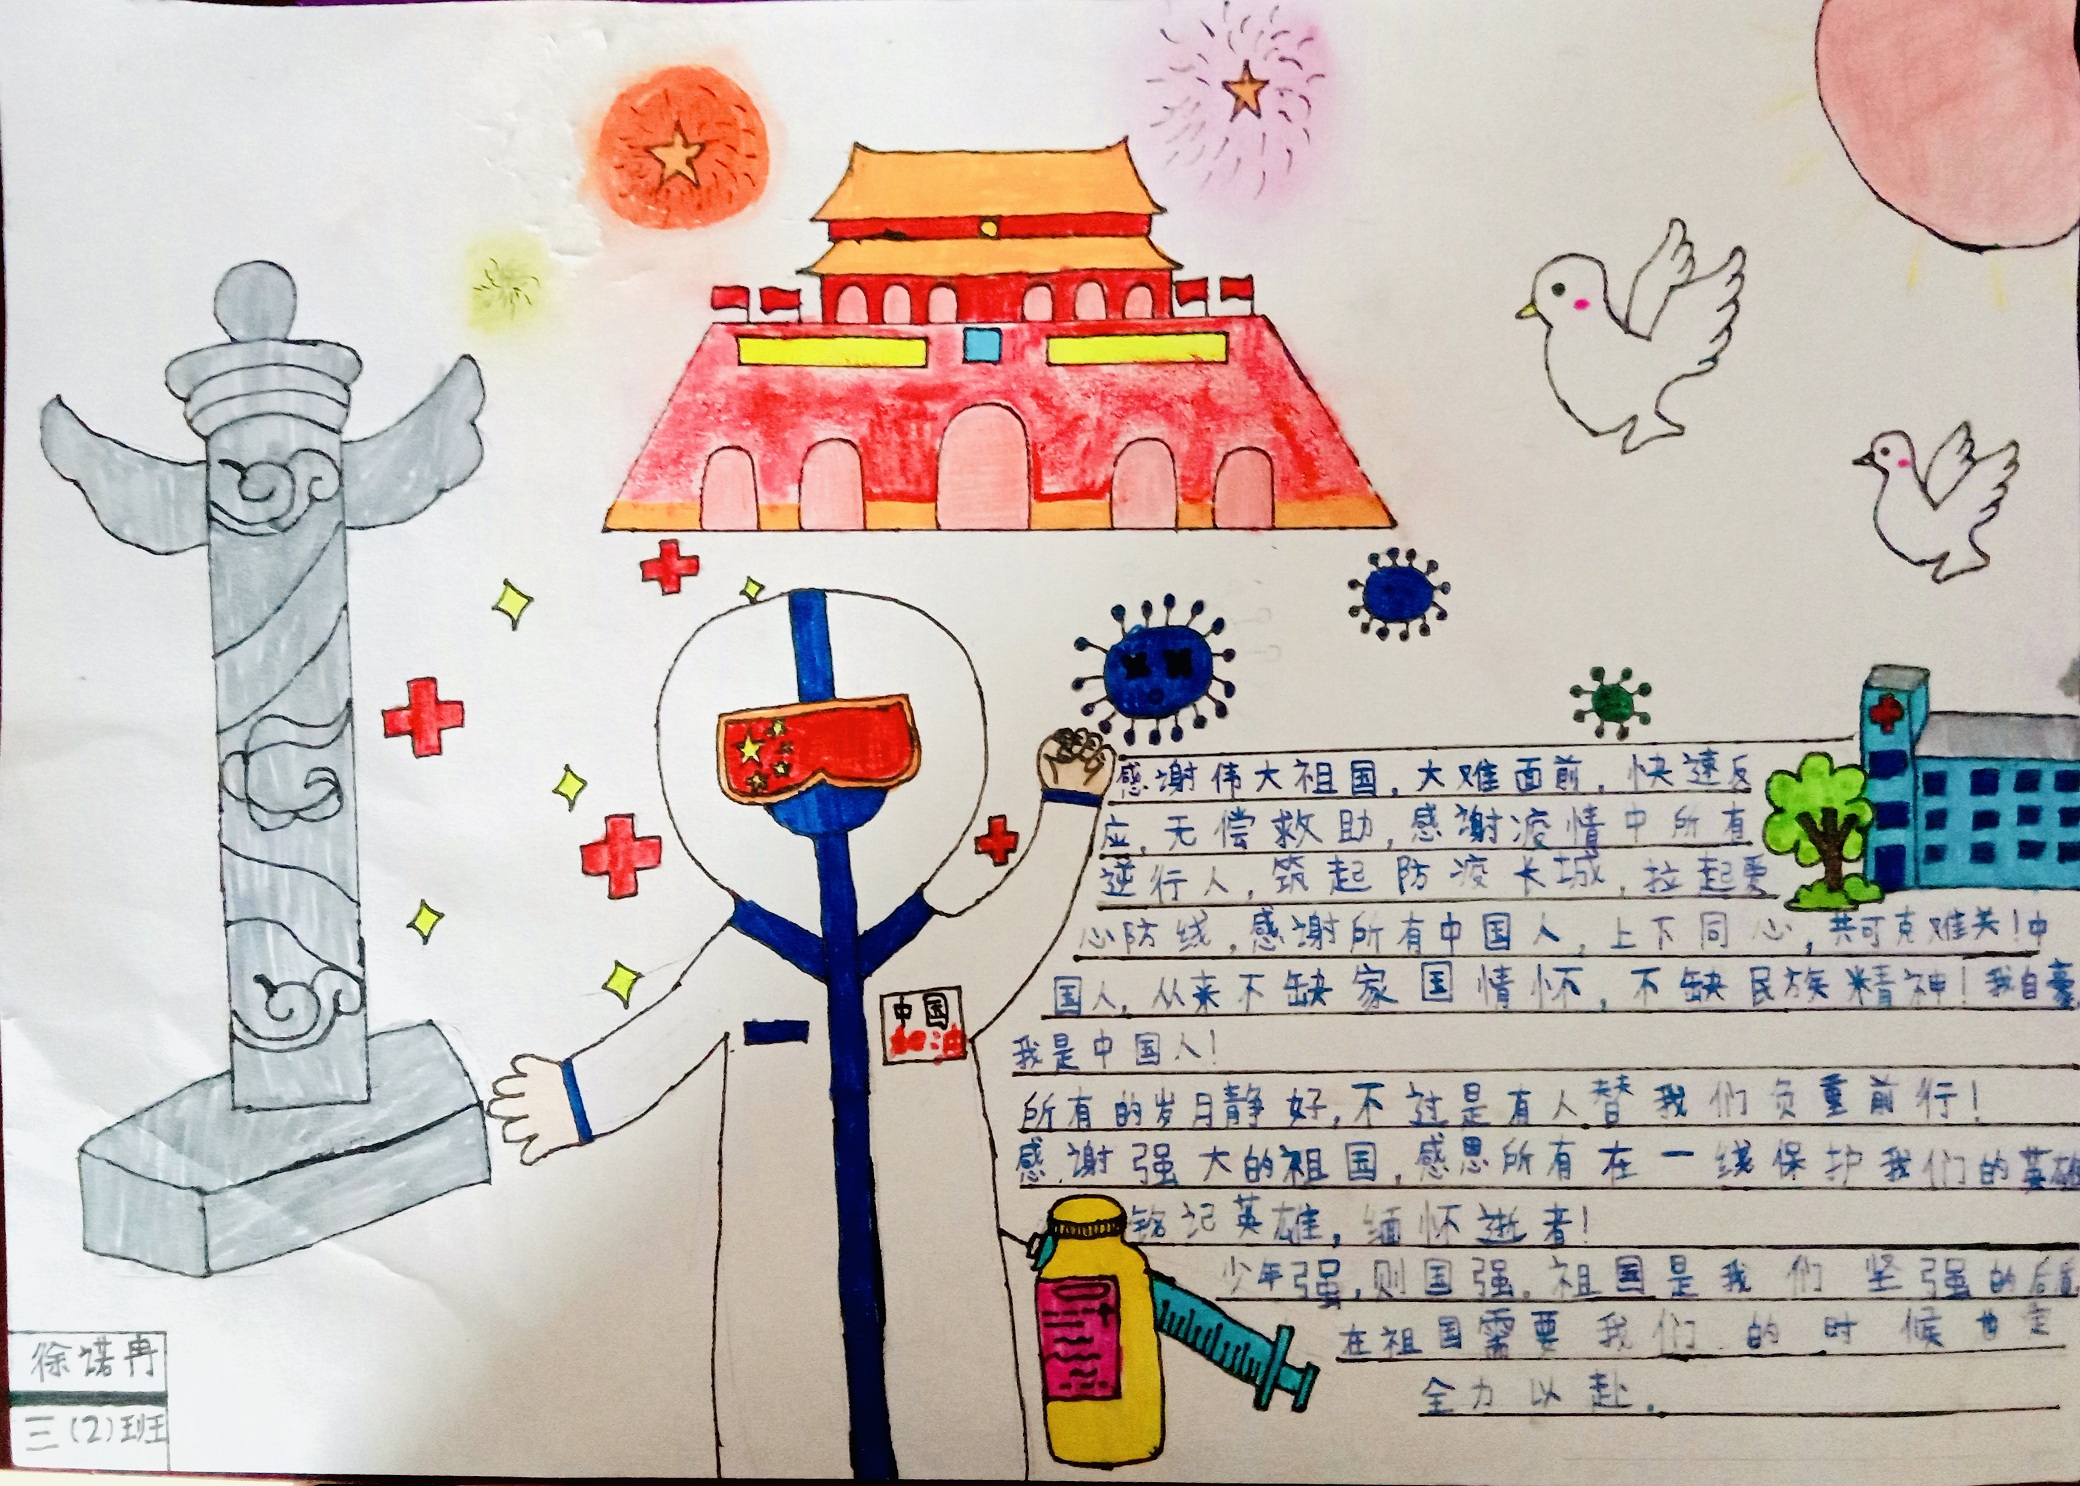 感谢伟大祖国，大难面前，快速反
应，无偿救助，感谢疫情中所有
逆行人，筑起防疫长城，拉起爱
心防线，感谢所有中国人，上下同心，共可克难关！中
国人，从来不缺家国情怀，不缺民族精神！我自豪
我是中国人！
所有的岁月静好，不过是有人替我们负重前行！
感谢强大的祖国，感恩所有在一线保护我们的英雄
铭记英雄，缅怀逝者！
少年强，则国强。祖国是我们坚强的后盾
在祖国需要我们的时候也是
全力以赴．
中国
加油
徐诺冉
三（2）班